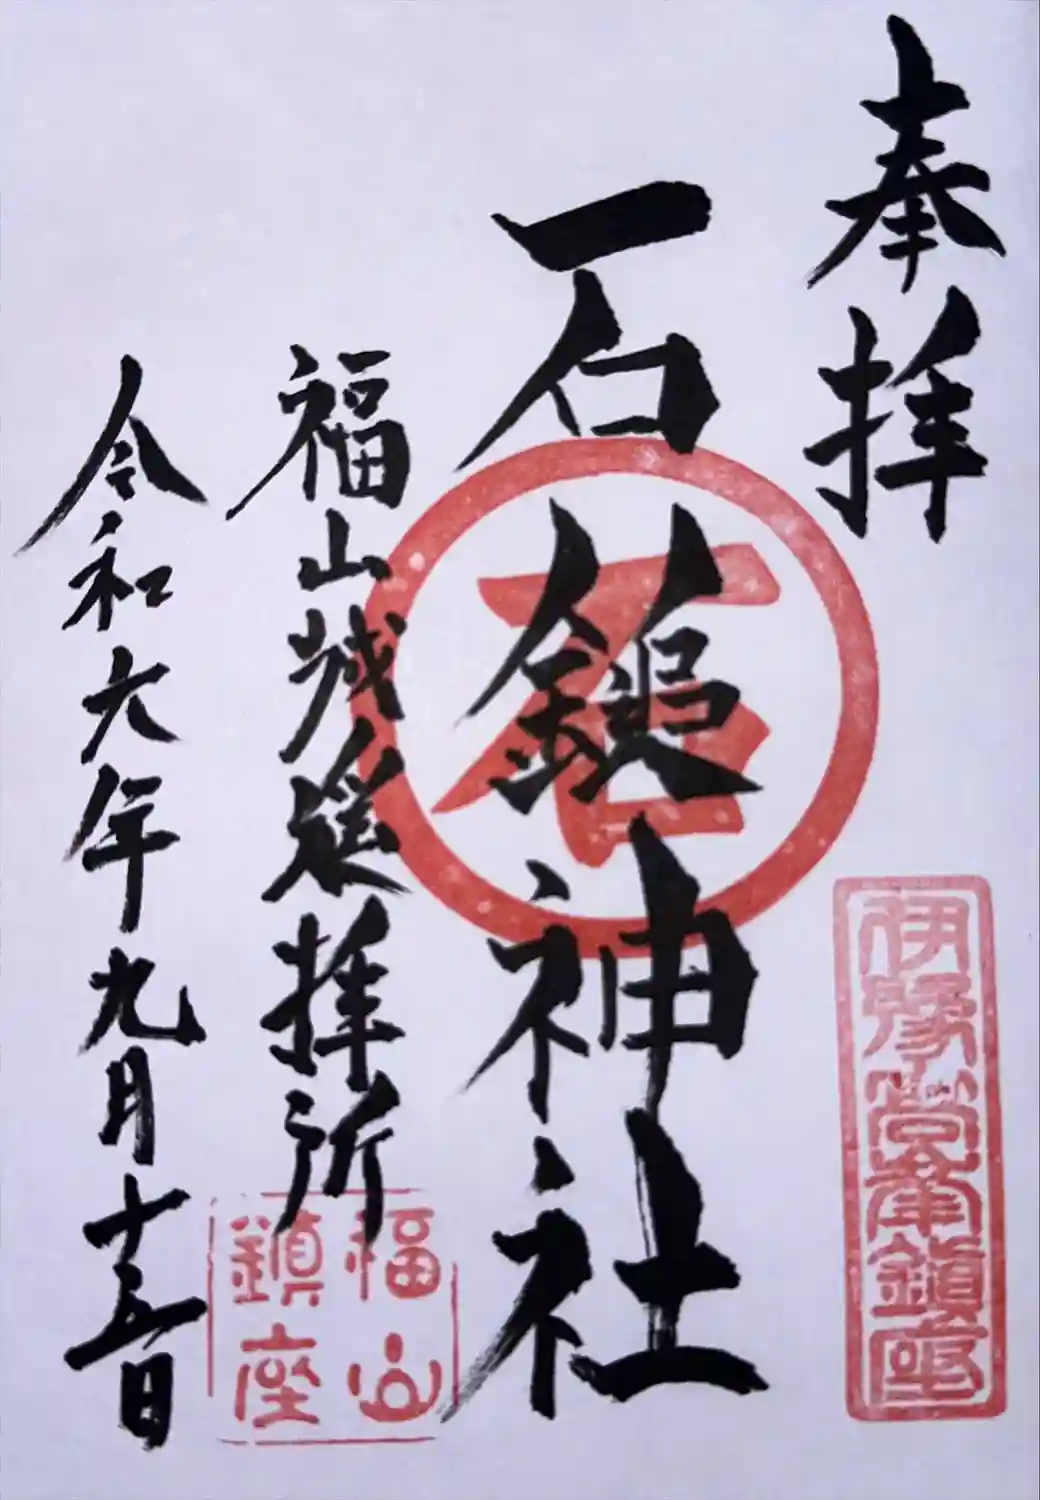 奉拝
伊豫
鎮座
石鎚神社
石
福山城遥拝所
福山
鎮座
令和六年九月十五日